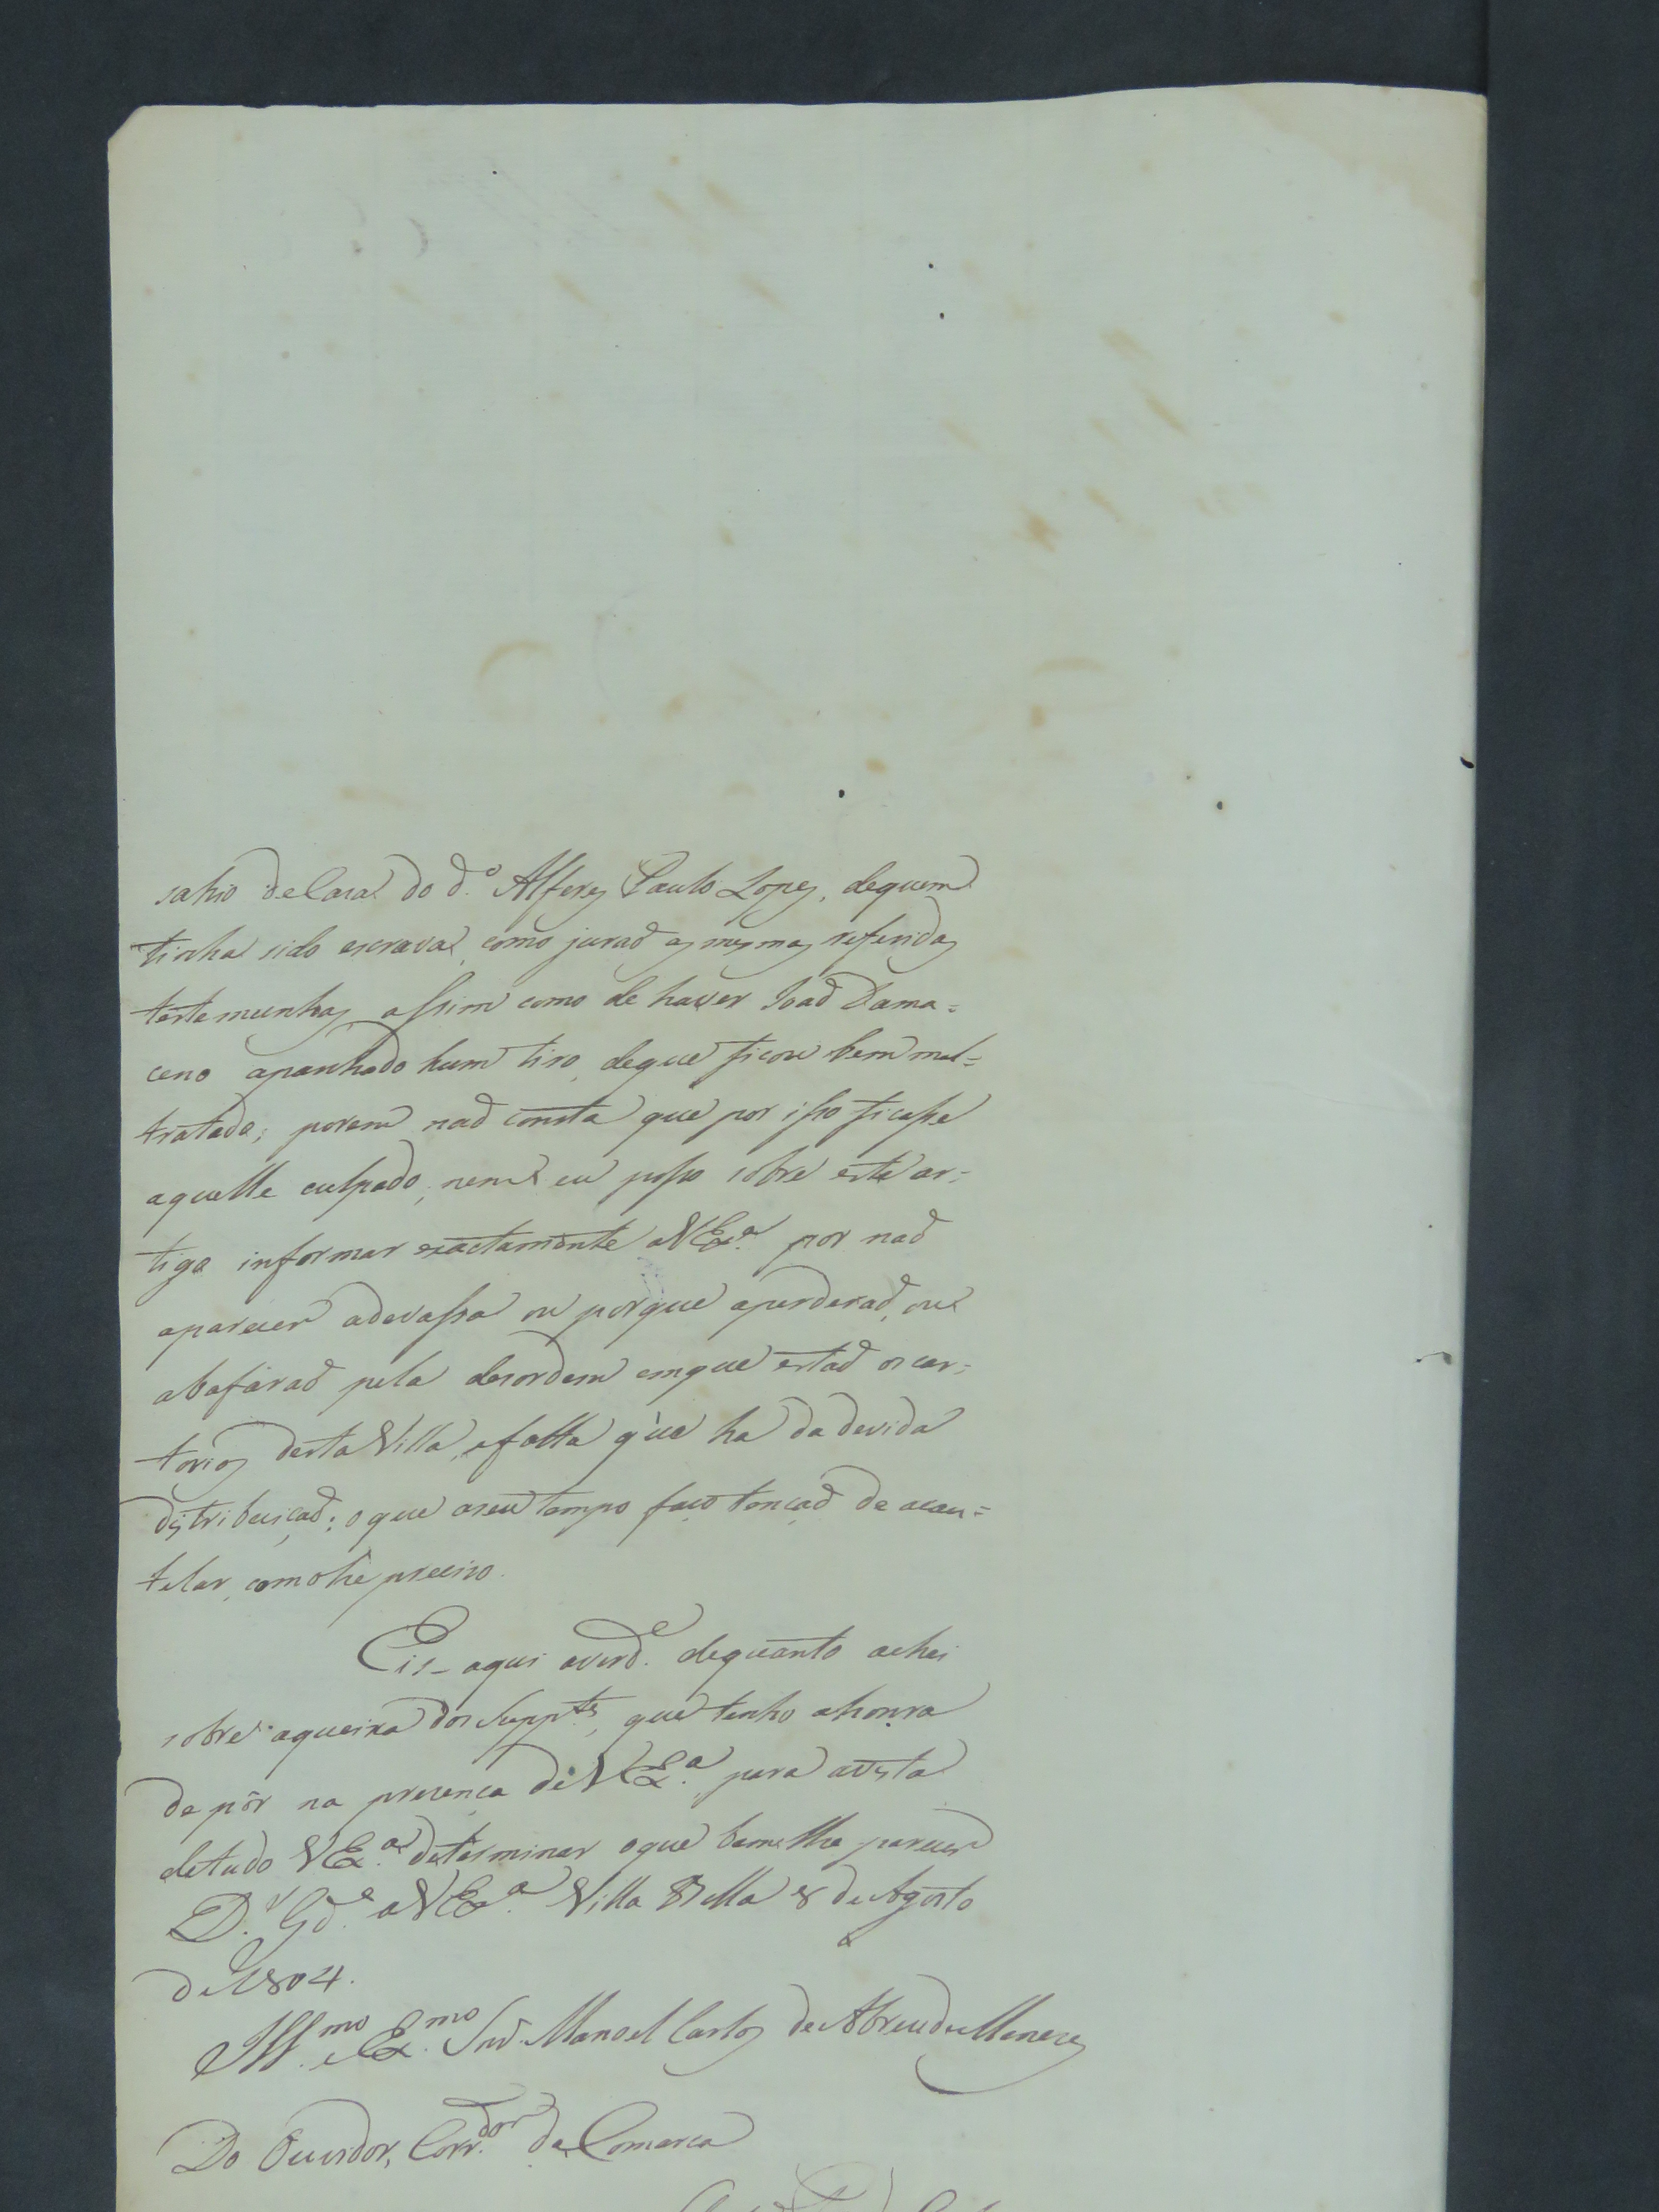 sahio de Casa do d.º Alferes Paulo Lopes, dequem
tinha sido escrava, como juraõ as mesmas referidas
testemunhas, assim como de haver Joaõ Dama=
ceno apanhado hum tiro, deque ficou bem mal=
tratado; porem naõ consta que por isso ficasse
aquelle culpado, nem eu posso sobre este ar=
tigo informar exactamente a V Ex.ª por naõ
aparecer adevassa ou porque aperderaõ, ou
abafáraõ pela desordem emque estaõ os car=
torios desta Villa, efalta que ha da devida
distribuiçaõ; oque aseu tempo faço tençaõ de acau=
telar, como he preciso.
Eis-aqui averd.e dequanto achei
sobre aqueixa dos Supp.tes, que tenho ahonra
de pôr na presença de V Ex.ª para avista
detudo V Ex.ª determinar oque bem lhe parecer
D.s G.de a V Ex.ª Villa Bella 8 de Agosto
de 1804.
Ill.mo e Ex.mo Snr. Manoel Carlos de Abreu de Menezes
Do Ouvidor, Corr.dor da Comarca